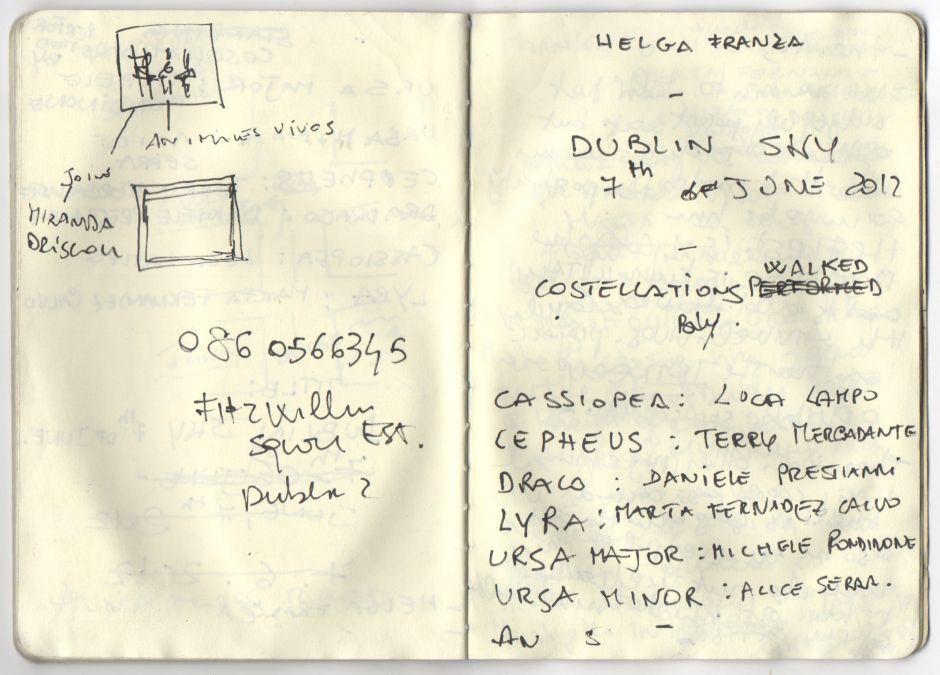 ANIMALES VIVOS
JOINS
MIRANDA
DRISCOLL
086 0566345
Fitzwilliam
Square EST.
Dublin 2
HELGA FRANZA
-
DUBLIN SKY
7th of JUNE 2012
-
WALKED
COSTELLATIONS PERFORMED
by.
CASSIOPEA: LUCA LAMPO
CEPHEUS: TERRY MERCADANTE
DRACO: DANIELE PRESTIANNI
LYRA: MARTA FERNADEZ CALVO
URSA MAJOR: MICHELE
URSA MINOR: ALICE SERAR.
-